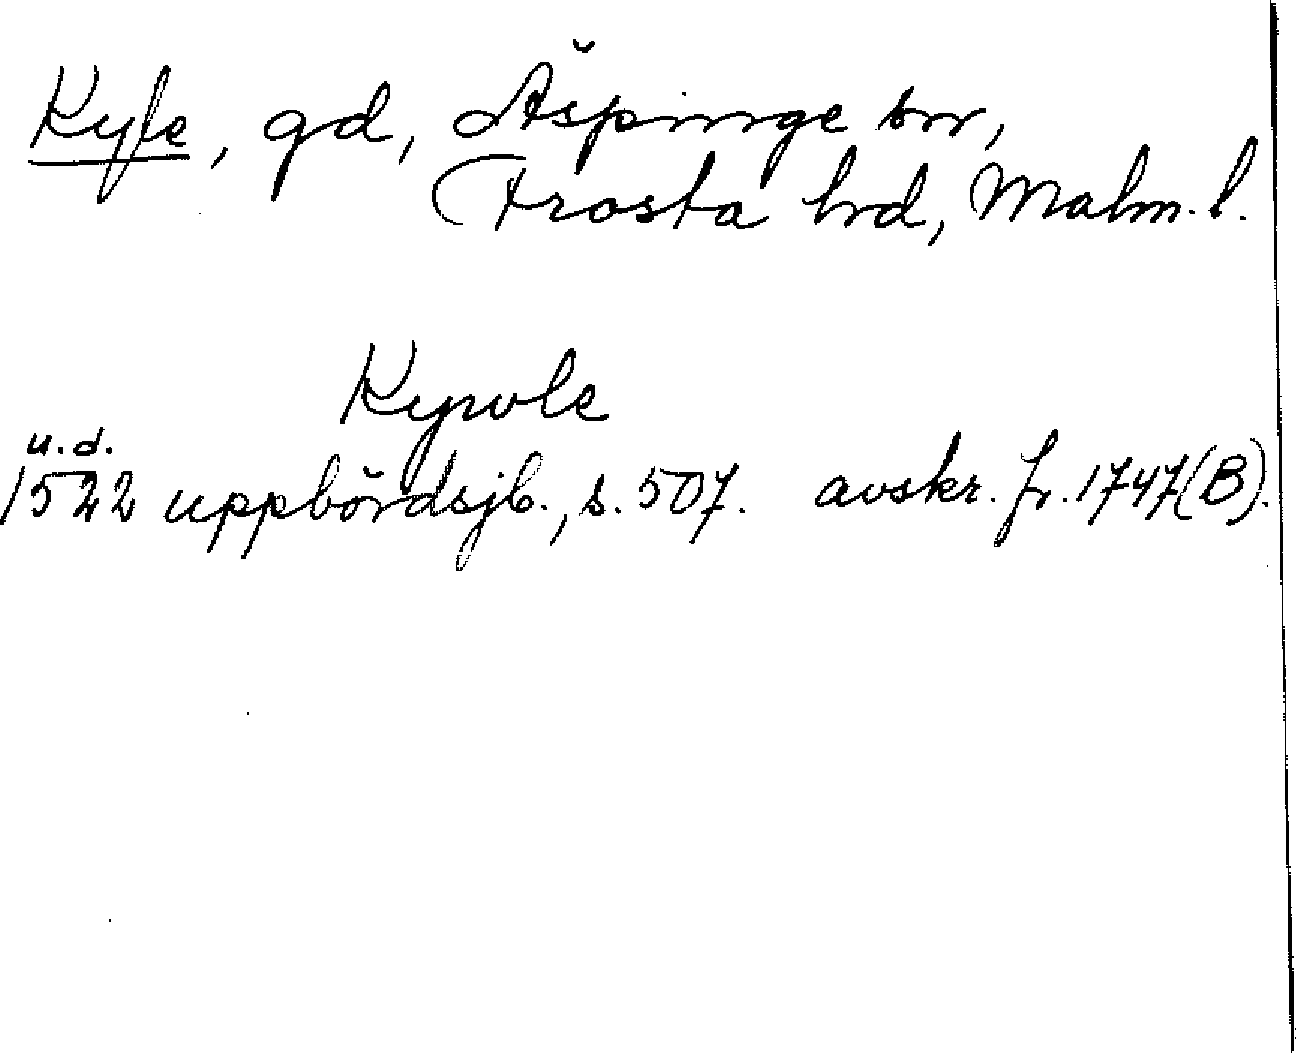 Kyle, gd, Äspinge sn,
Frosta hrd, Malm. l.
Kyrvle
u.d.
1522 uppbördsjb., s. 507. avskr. fr. 1747(B).